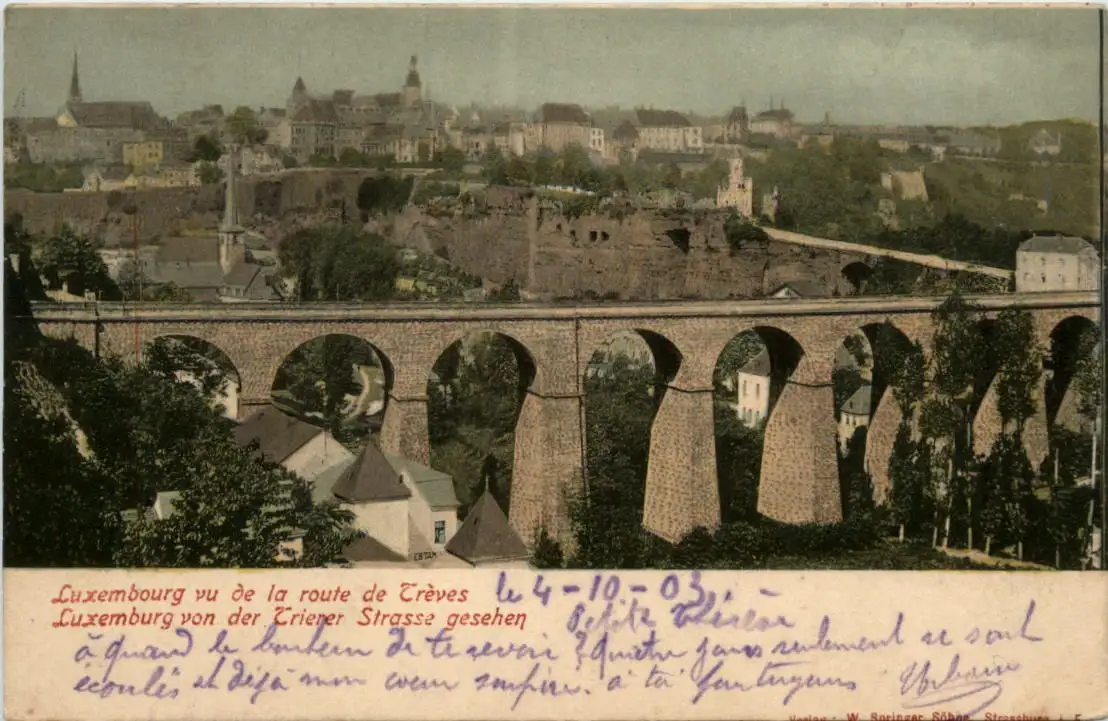 ESTAM
Luxembourg vu de la route de Trèves
Luxemburg von der Trierer Strasse gesehen
le 4-10-03.
Petite Thérèse
à quand le bonheur de te revoir? quatre jours seulement se sont
écoulés et déjà mon cœur soupire. à toi pour toujours Urbain
Verlag: W. Springer Söhne, Strassburg i. E.